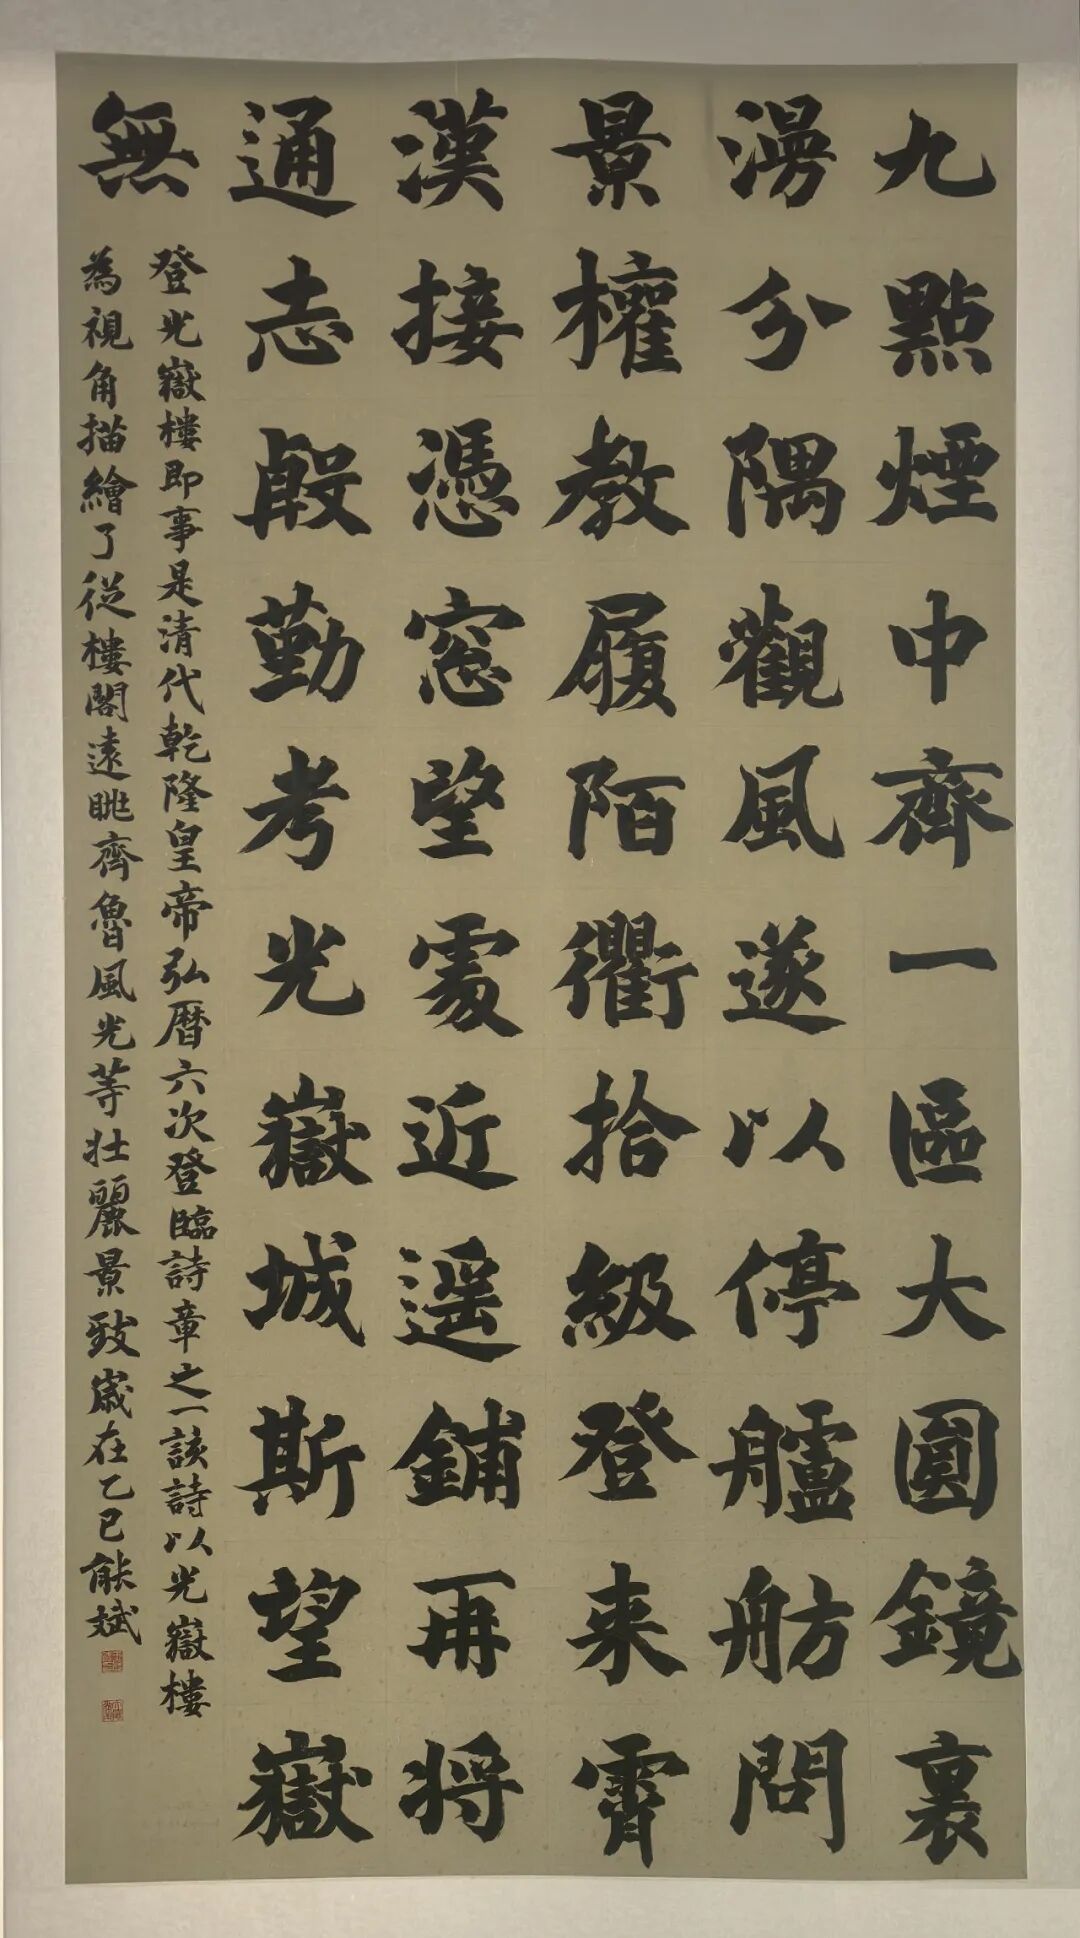 九點煙中齊一區大圓鏡裏
漫分隅觀風遂以停艫舫問
景權教履陌衢拾級登來霄
漢接憑窓望處近遥鋪再將
通志殷勤考光嶽城斯望嶽
無
登光嶽樓即事是清代乾隆皇帝弘曆六次登臨詩章之一該詩以光嶽樓
為視角描繪了從樓閣遠眺齊魯風光等壯麗景致歲在乙巳能斌